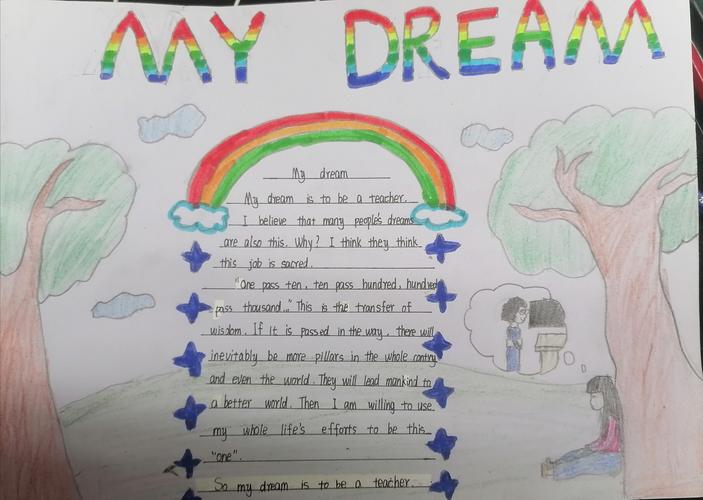 MY DREAM
My dream
My dream is to be a teacher.
I believe that many people's dreams
are also this. Why? I think they think
this job is sacred.
"One pass ten, ten pass hundred, hundred
pass thousand..." This is the transfer of
wisdom. If it is passed in the way, there will
inevitably be more pillars in the whole contry
and even the world. They will lead mankind to
a better world. Then I am willing to use
my whole life's efforts to be this
"one".
So my dream is to be a teacher.